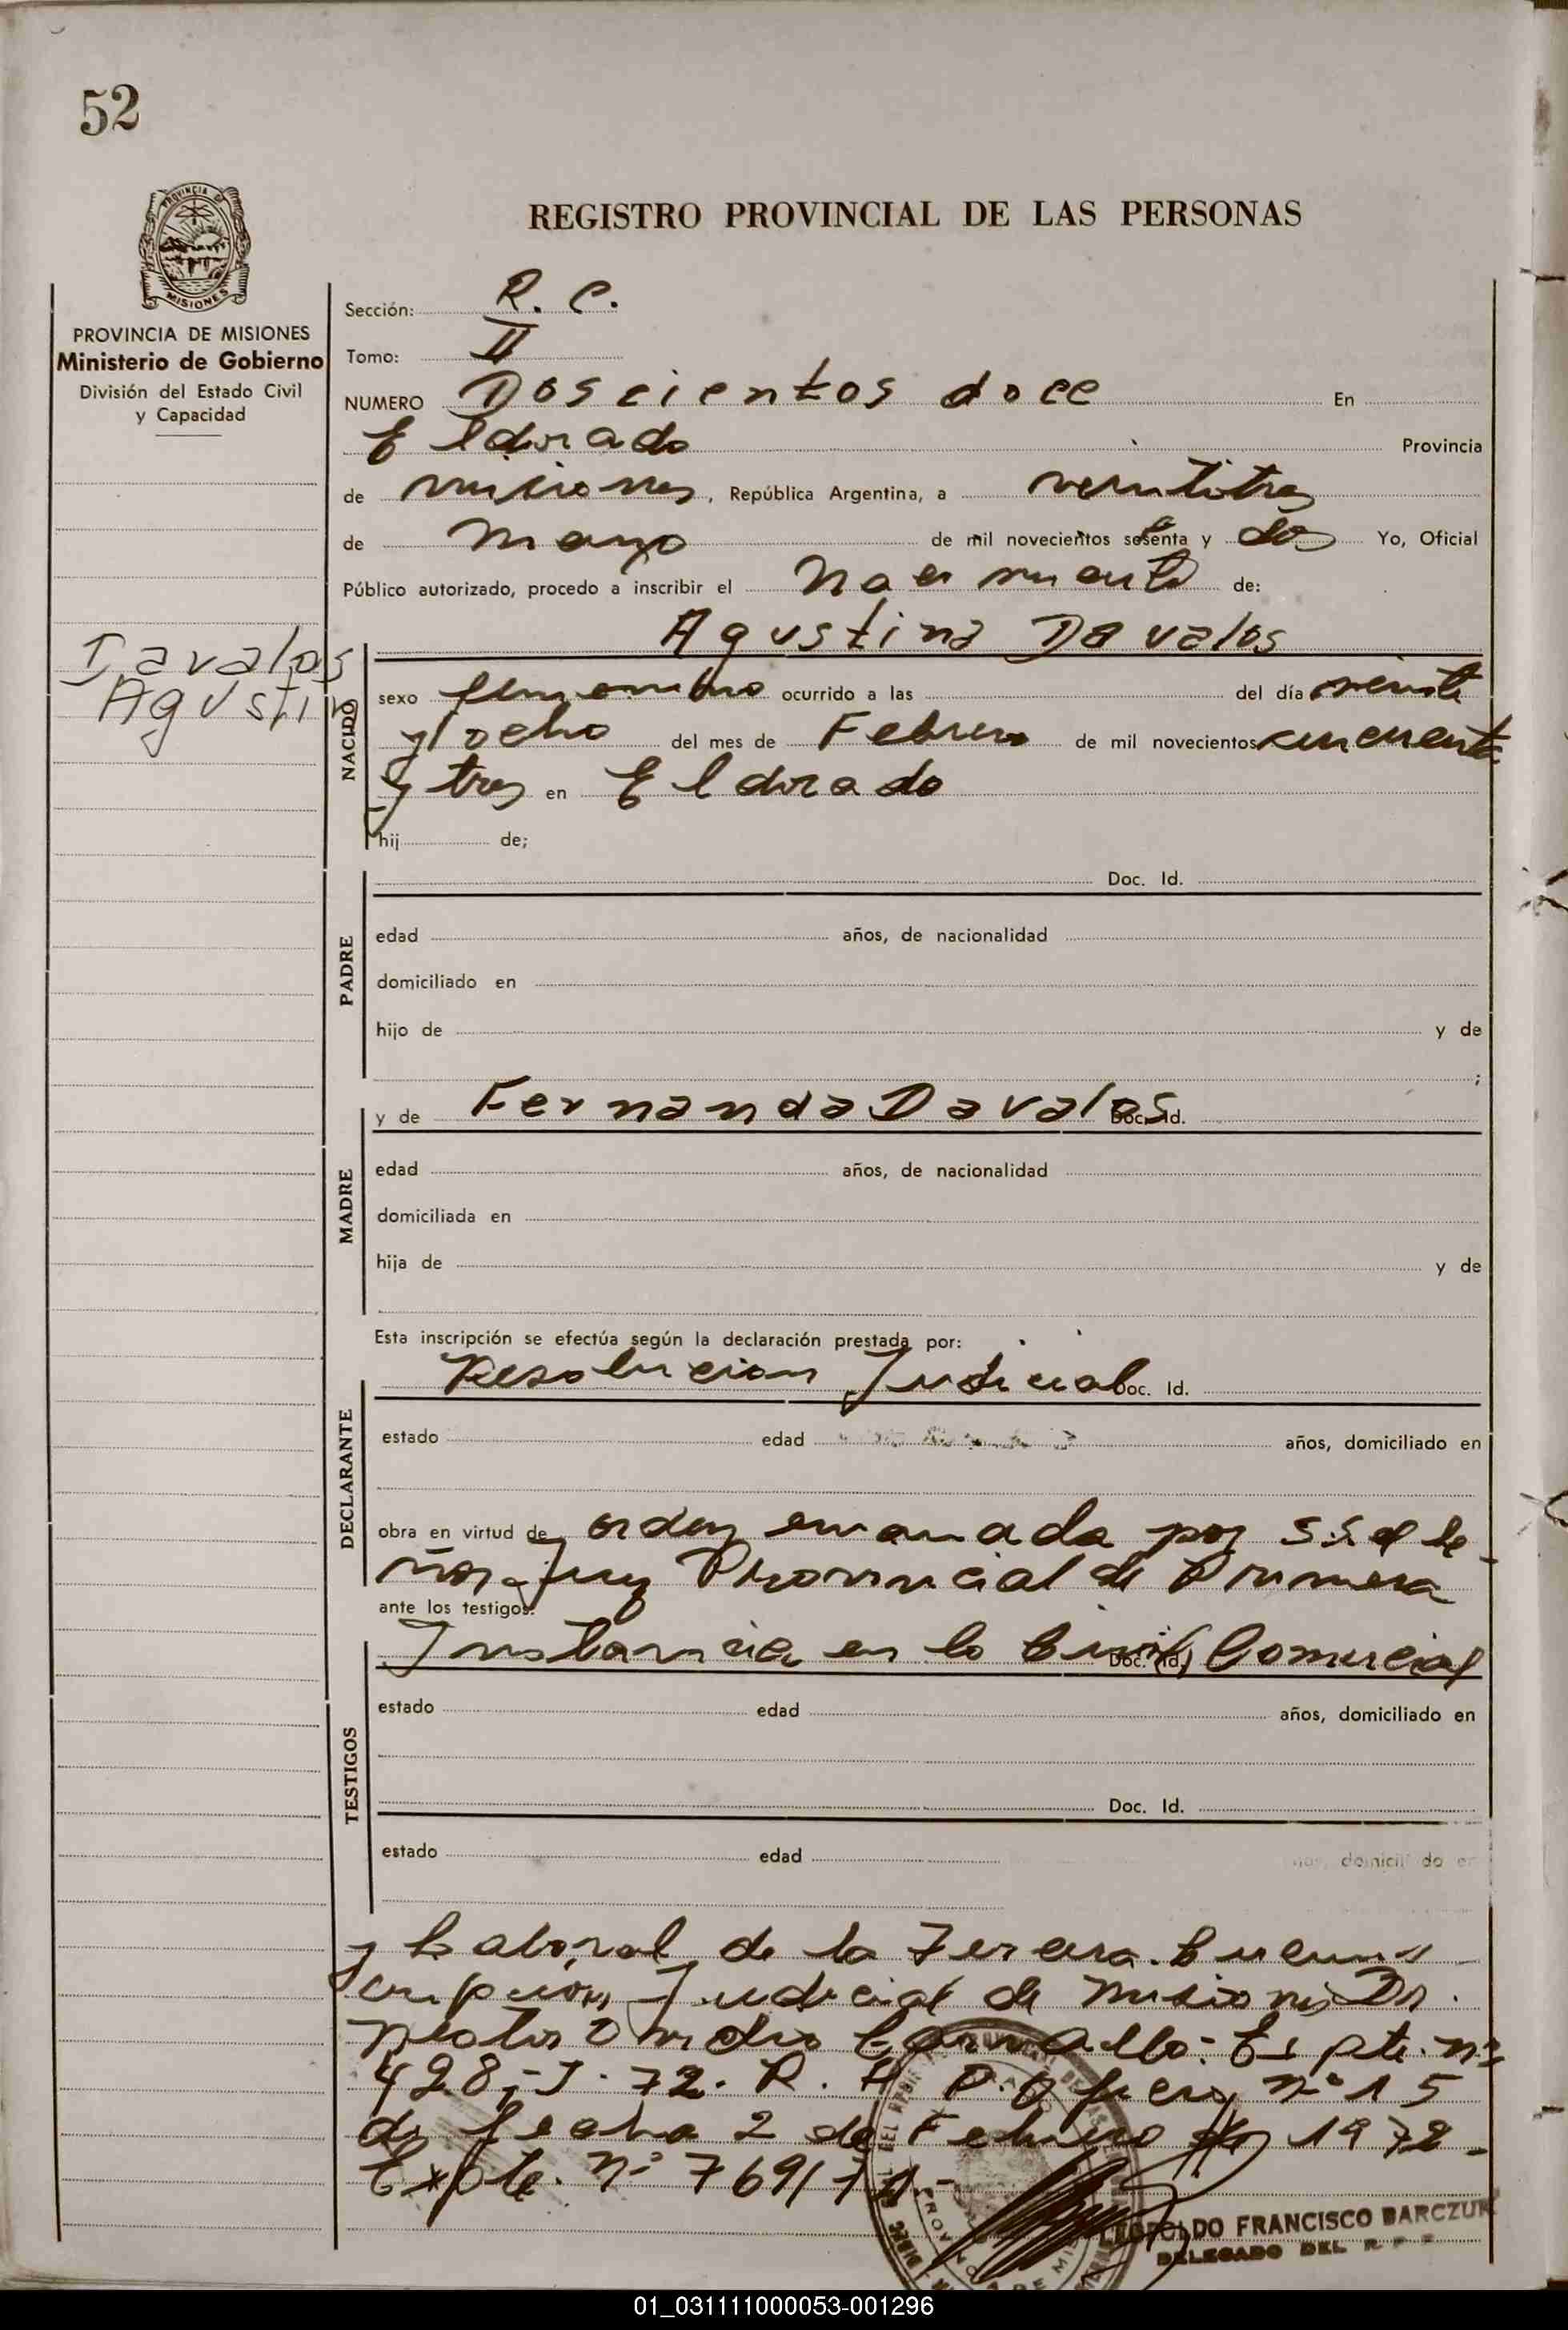 52
PROVINCIA DE
MISIONES
REGISTRO PROVINCIAL DE LAS PERSONAS
PROVINCIA DE MISIONES
Ministerio de Gobierno
División del Estado Civil
y Capacidad
Davalos
Agustin
Sección: R. C.
Tomo: II
NUMERO Doscientos doce En
Eldorado Provincia
de misiones, República Argentina, a veintitres
de mayo de mil novecientos setenta y dos Yo, Oficial
Público autorizado, procedo a inscribir el Nacimiento de:
Agustina Davalos
NACIDO
sexo femenino ocurrido a las del día veinte
y ocho del mes de Febrero de mil novecientos cincuenta
y tres en Eldorado
hij de;
PADRE
Doc. Id.
edad años, de nacionalidad
domiciliado en
hijo de y de
;
MADRE
y de Fernanda Davalos Doc. Id.
edad años, de nacionalidad
domiciliada en
hija de y de
Esta inscripción se efectúa según la declaración prestada por:
DECLARANTE
Resolucion Judicial Doc. Id.
estado edad años, domiciliado en
obra en virtud de orden emanada por S.S. el se-
ñor Juez Provincial de Primera
ante los testigos:
TESTIGOS
Instancia en lo Civil, Comercial Doc. Id.
estado edad años, domiciliado en
Doc. Id.
estado edad domicili do en
y Laboral de la Tercera Circuns
cripcion Judicial de Misiones Dr.
Nestor Ovidio Carvallo. Expte. nº
428-J-72. R. H. P. Oficio nº 15
de fecha 2 de Febrero de 1972-
Expte. Nº 769/71-
LEOPOLDO FRANCISCO BARCZUK
DELEGADO DEL R P P
01_031111000053-001296